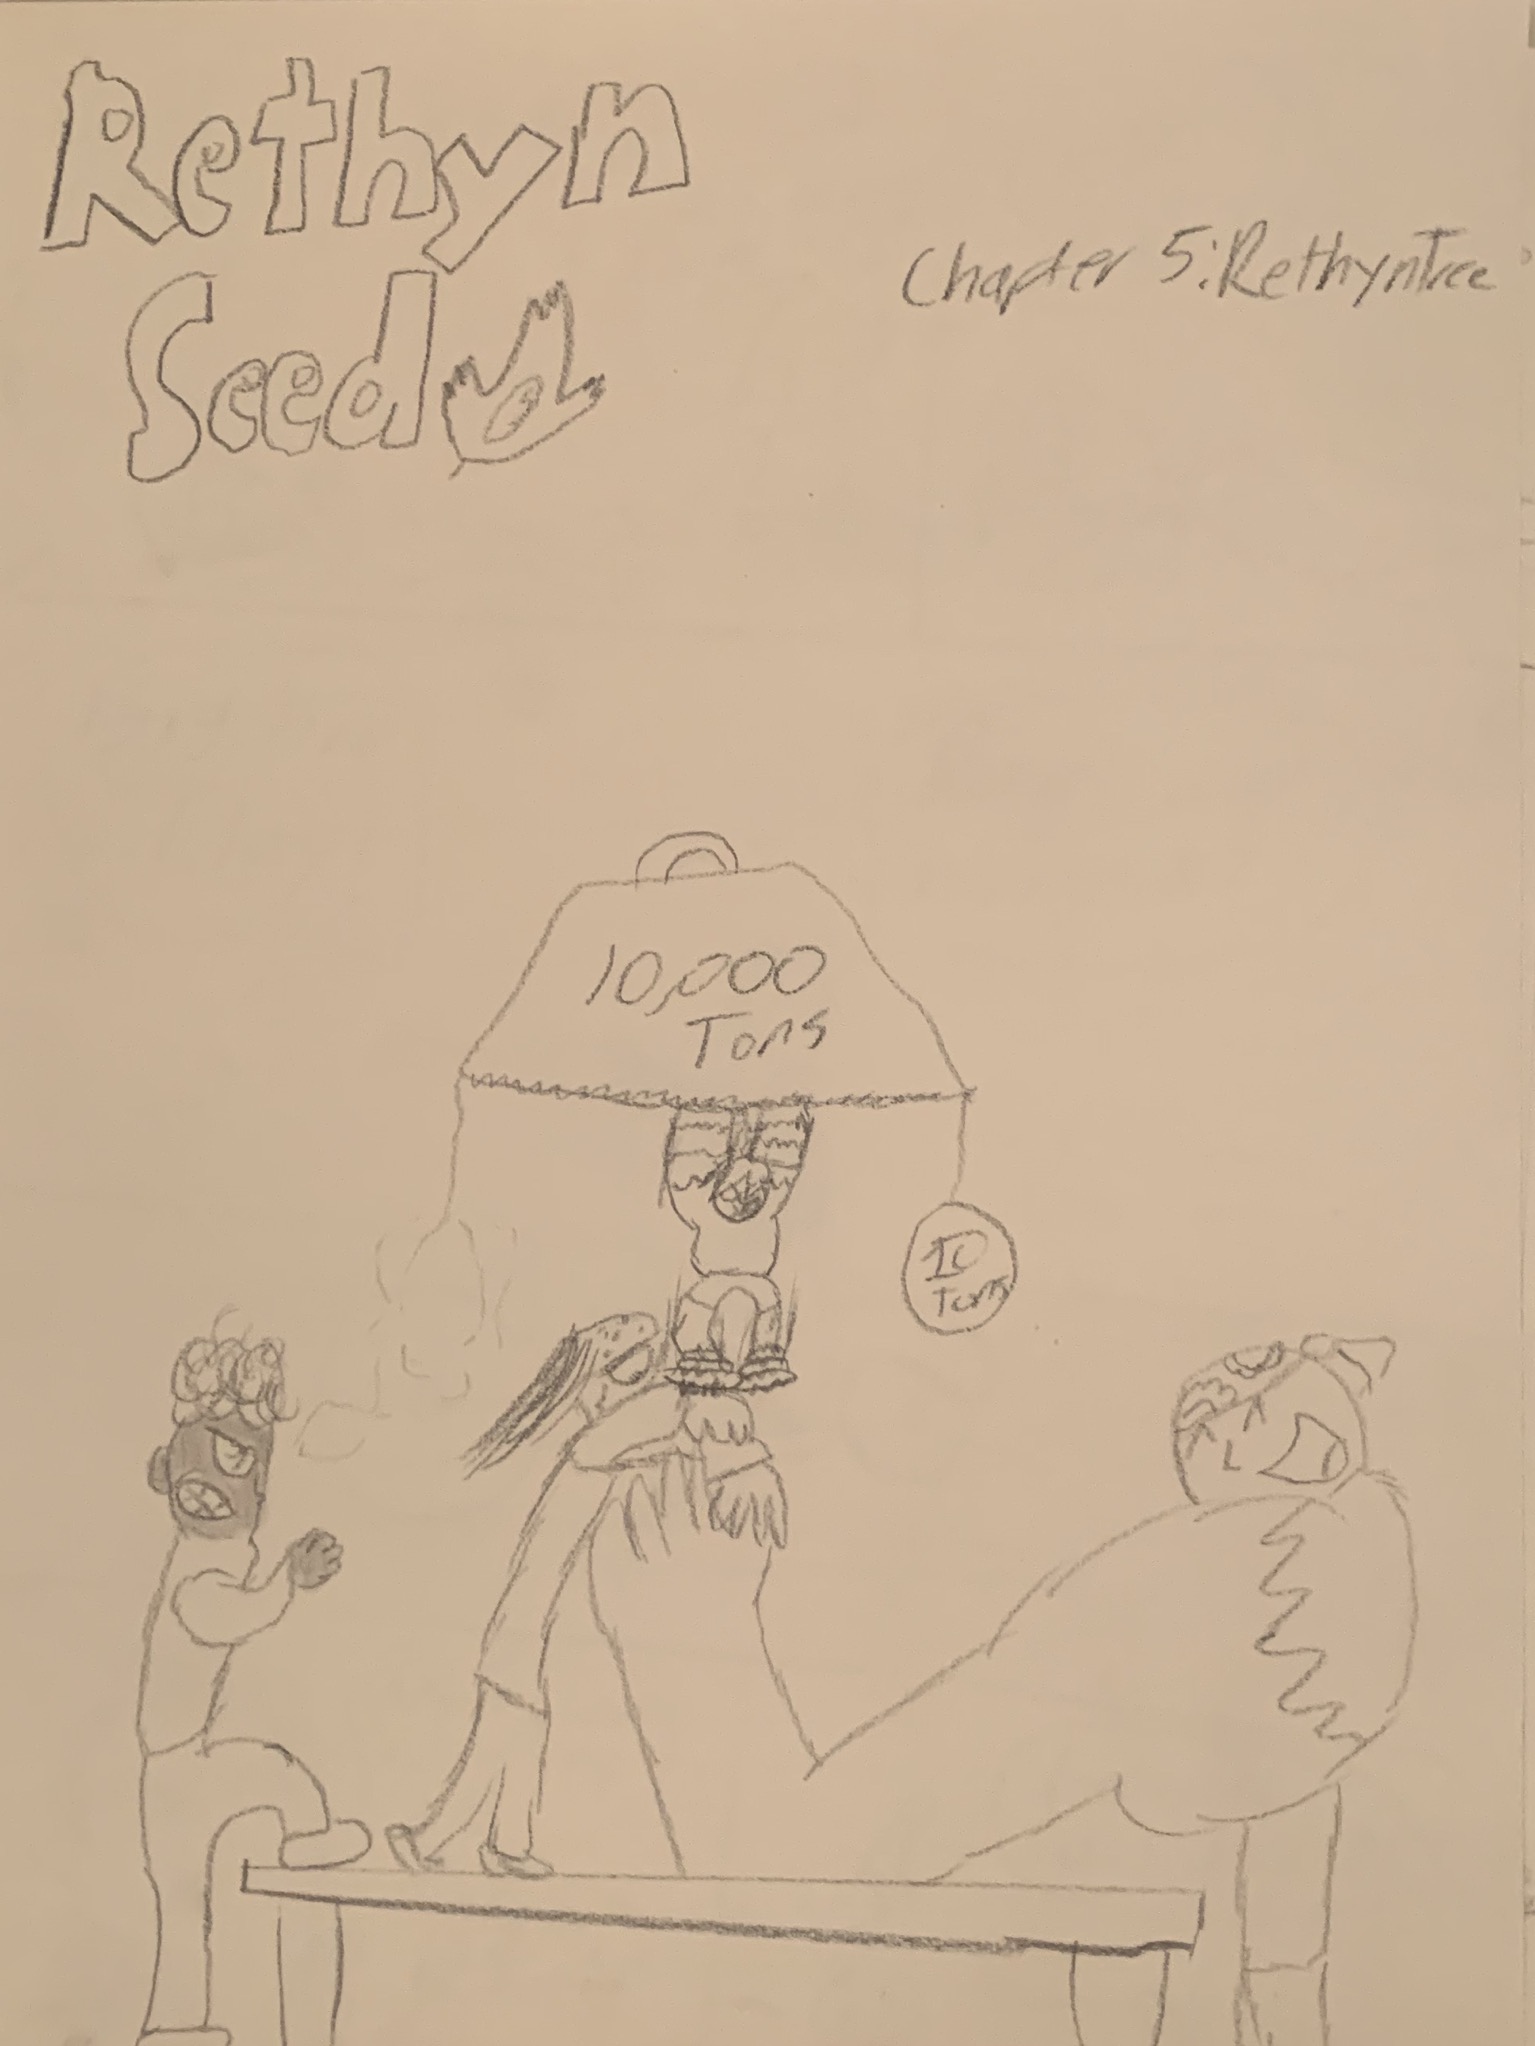 Rethyn
Seed
Chapter 5: Rethyn Tree
10,000
Tons
10
Tons